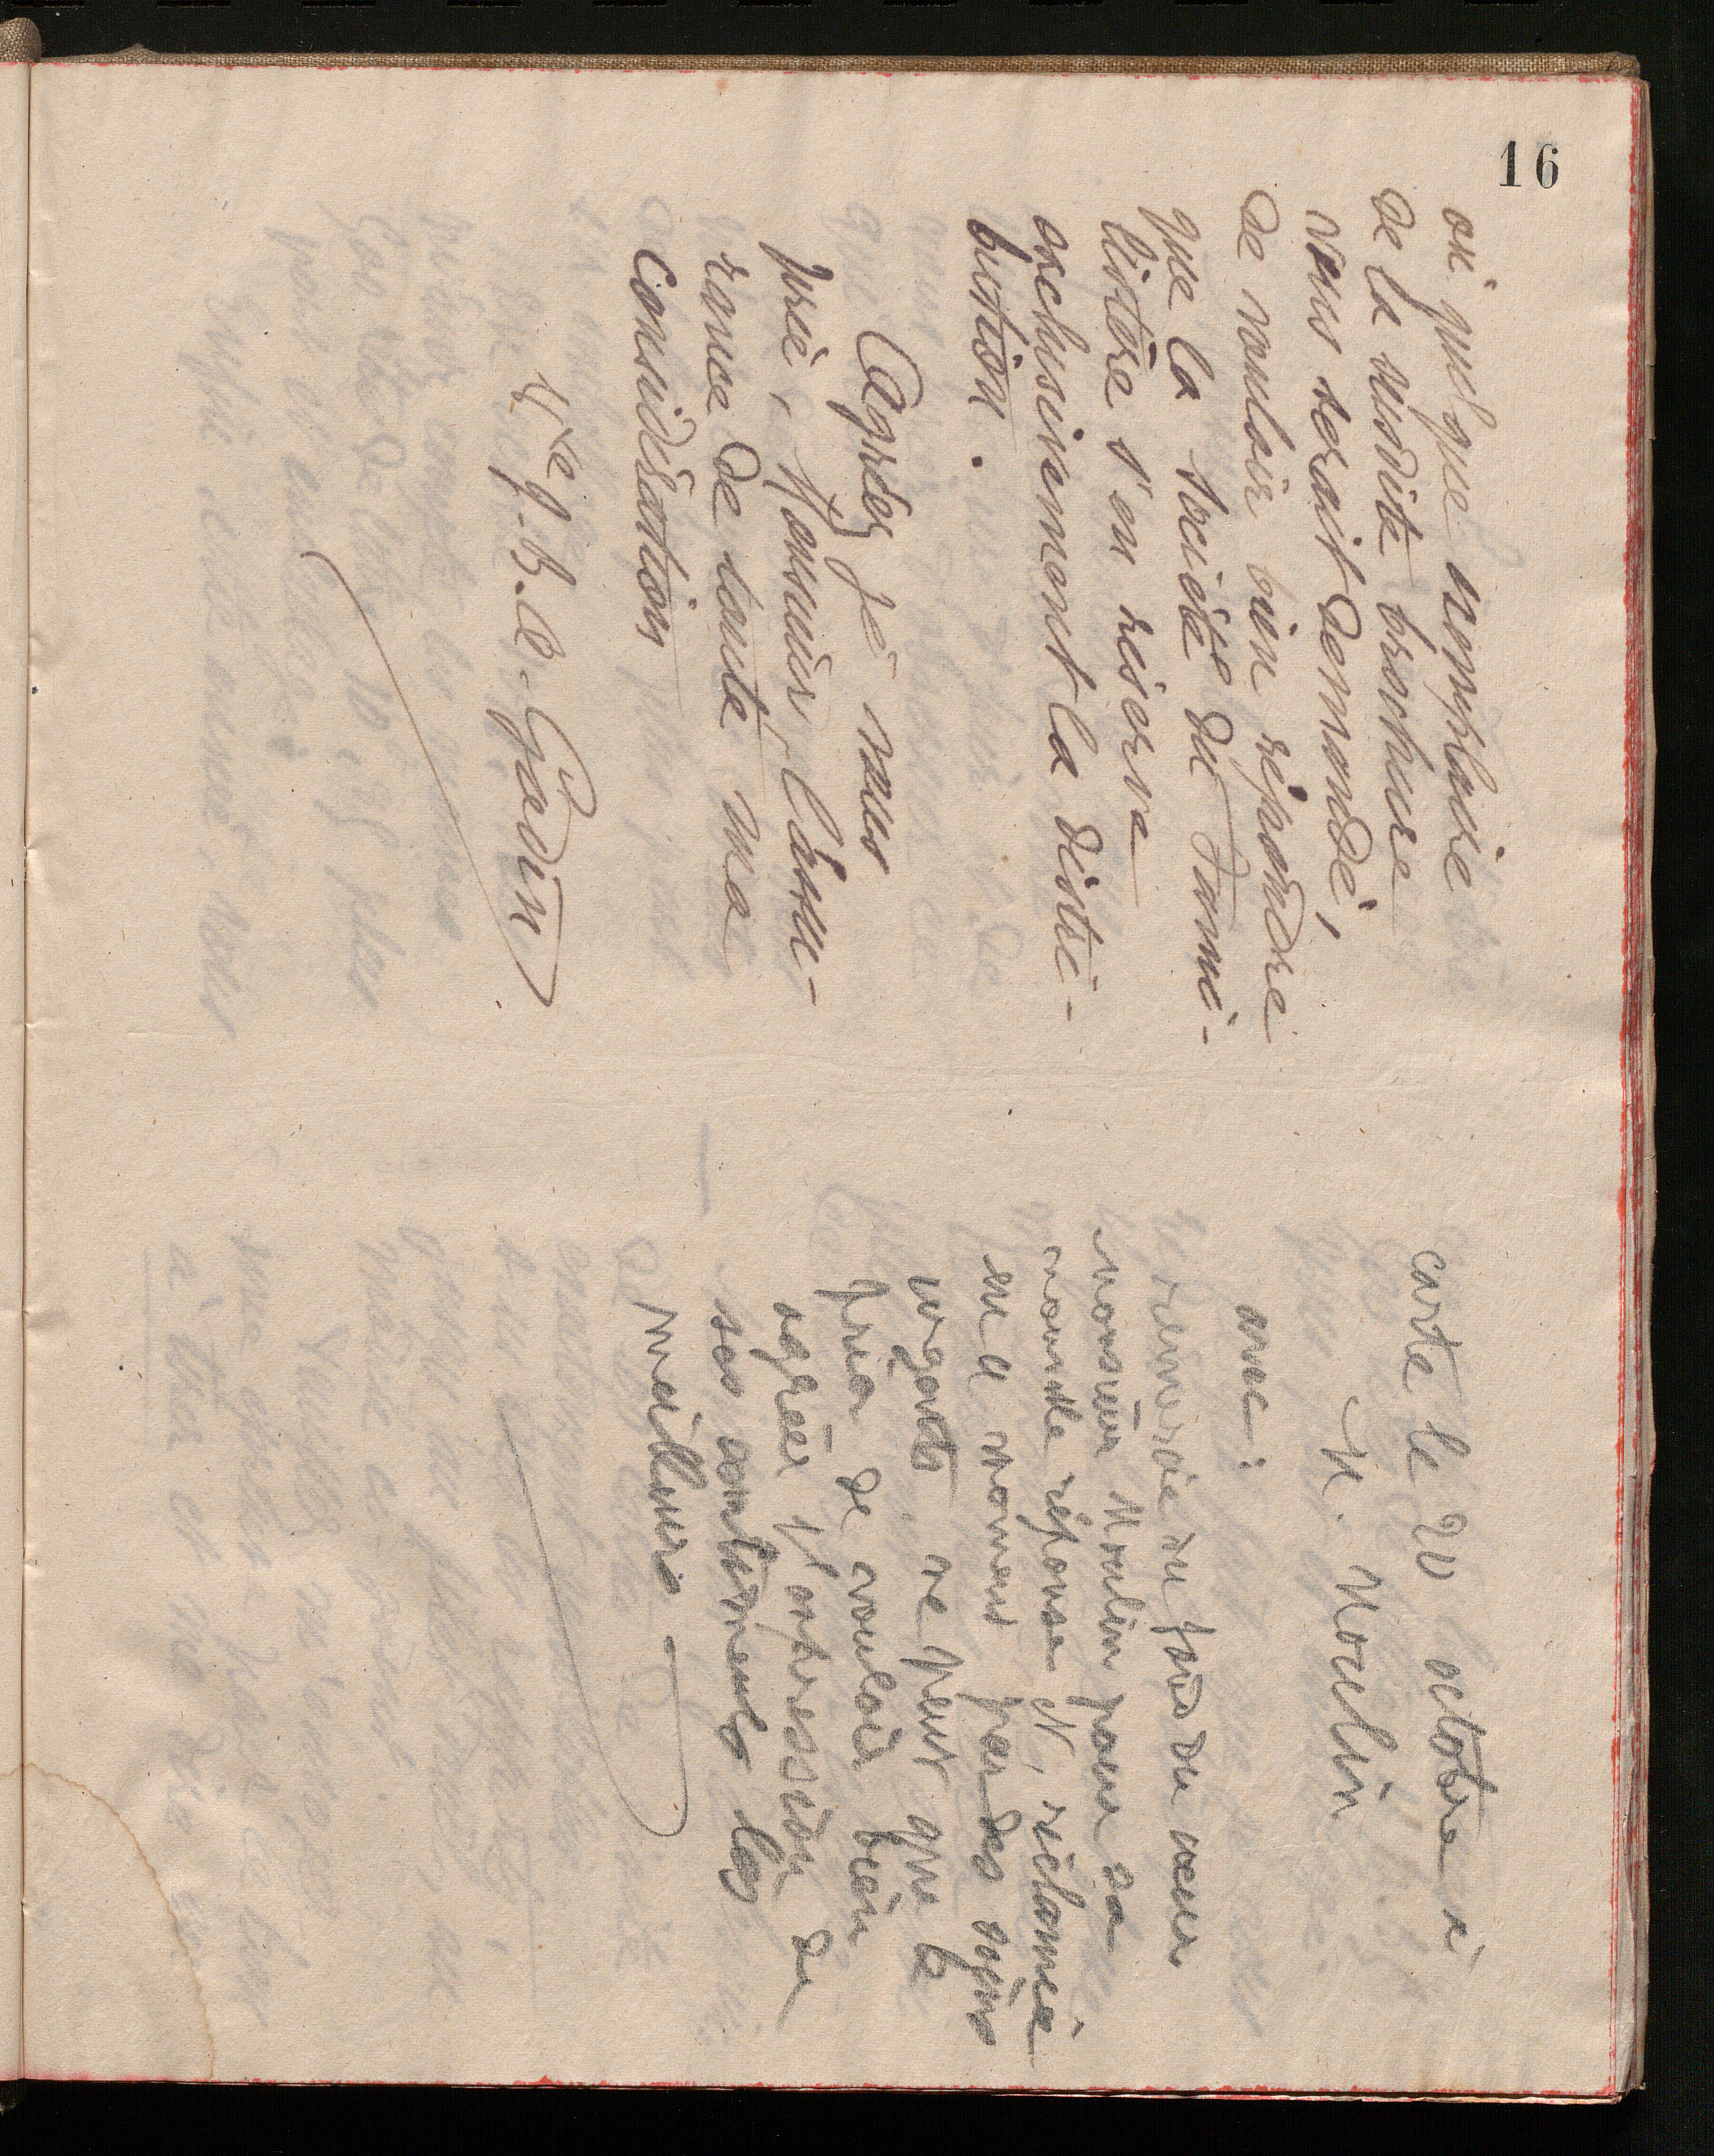 16
où quelque exemplaire
de la susdite brochure
vous serait demandé,
de vouloir bien répondre
que la société du Fami-
listère s'en réserve
exclusivement la distri-
bution.
Agréez je vous
prie, Monsieur, l'assu-
rance de toute ma
considération
Vve J.-B. A. Godin
carte le 20 octobre à
M. Moulin
avec :
remercie du fond du cœur
monsieur Moulin pour sa
nouvelle réponse et, réclamée
en ce moment par des soins
urgents, ne peut que le
prier de vouloir bien
agréer l'expression de
ses sentiments les
meilleurs